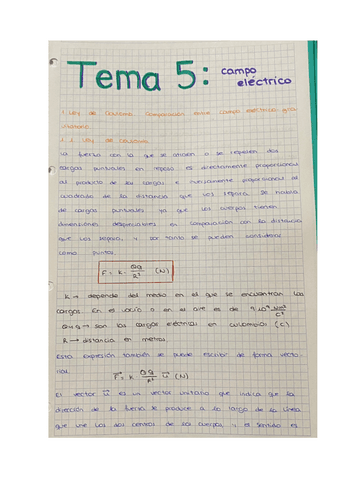 Tema 5: campo
eléctrico
1. Ley de Coulomb. Comparación entre campo eléctrico y gra
vitatorio
1.1. Ley de Coulomb
La fuerza con la que se atraen o se repelen dos
cargas puntuales en reposo es directamente proporcional
al producto de las cargas e inversamente proporcional al
cuadrado de la distancia que las separa. Se habla
de cargas puntuales ya que los cuerpos tienen
dimensiones despreciables en comparación con la distancia
que los separa, y por tanto se pueden considerar
como puntos.
F = K · Qq/R² (N)
K → depende del medio en el que se encuentran las
cargas. En el vacío o en el aire es de 9·10⁹ Nm²/C²
Q y q → son las cargas eléctricas en culombios (C)
R → distancia en metros
Esta expresión también se puede escribir de forma vecto
rial
F⃗ = K · Qq/R² u⃗ (N)
El vector u⃗ es un vector unitario que indica que la
dirección de la fuerza se produce a lo largo de la línea
que une los dos centros de los cuerpos y el sentido es